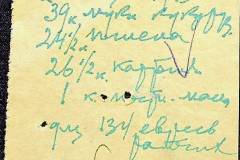 39 к. муки кукур.
24 1/2 к. пшена
26 1/2 к. картош
1 к. пост. масл
для 134 евреев
рабочих